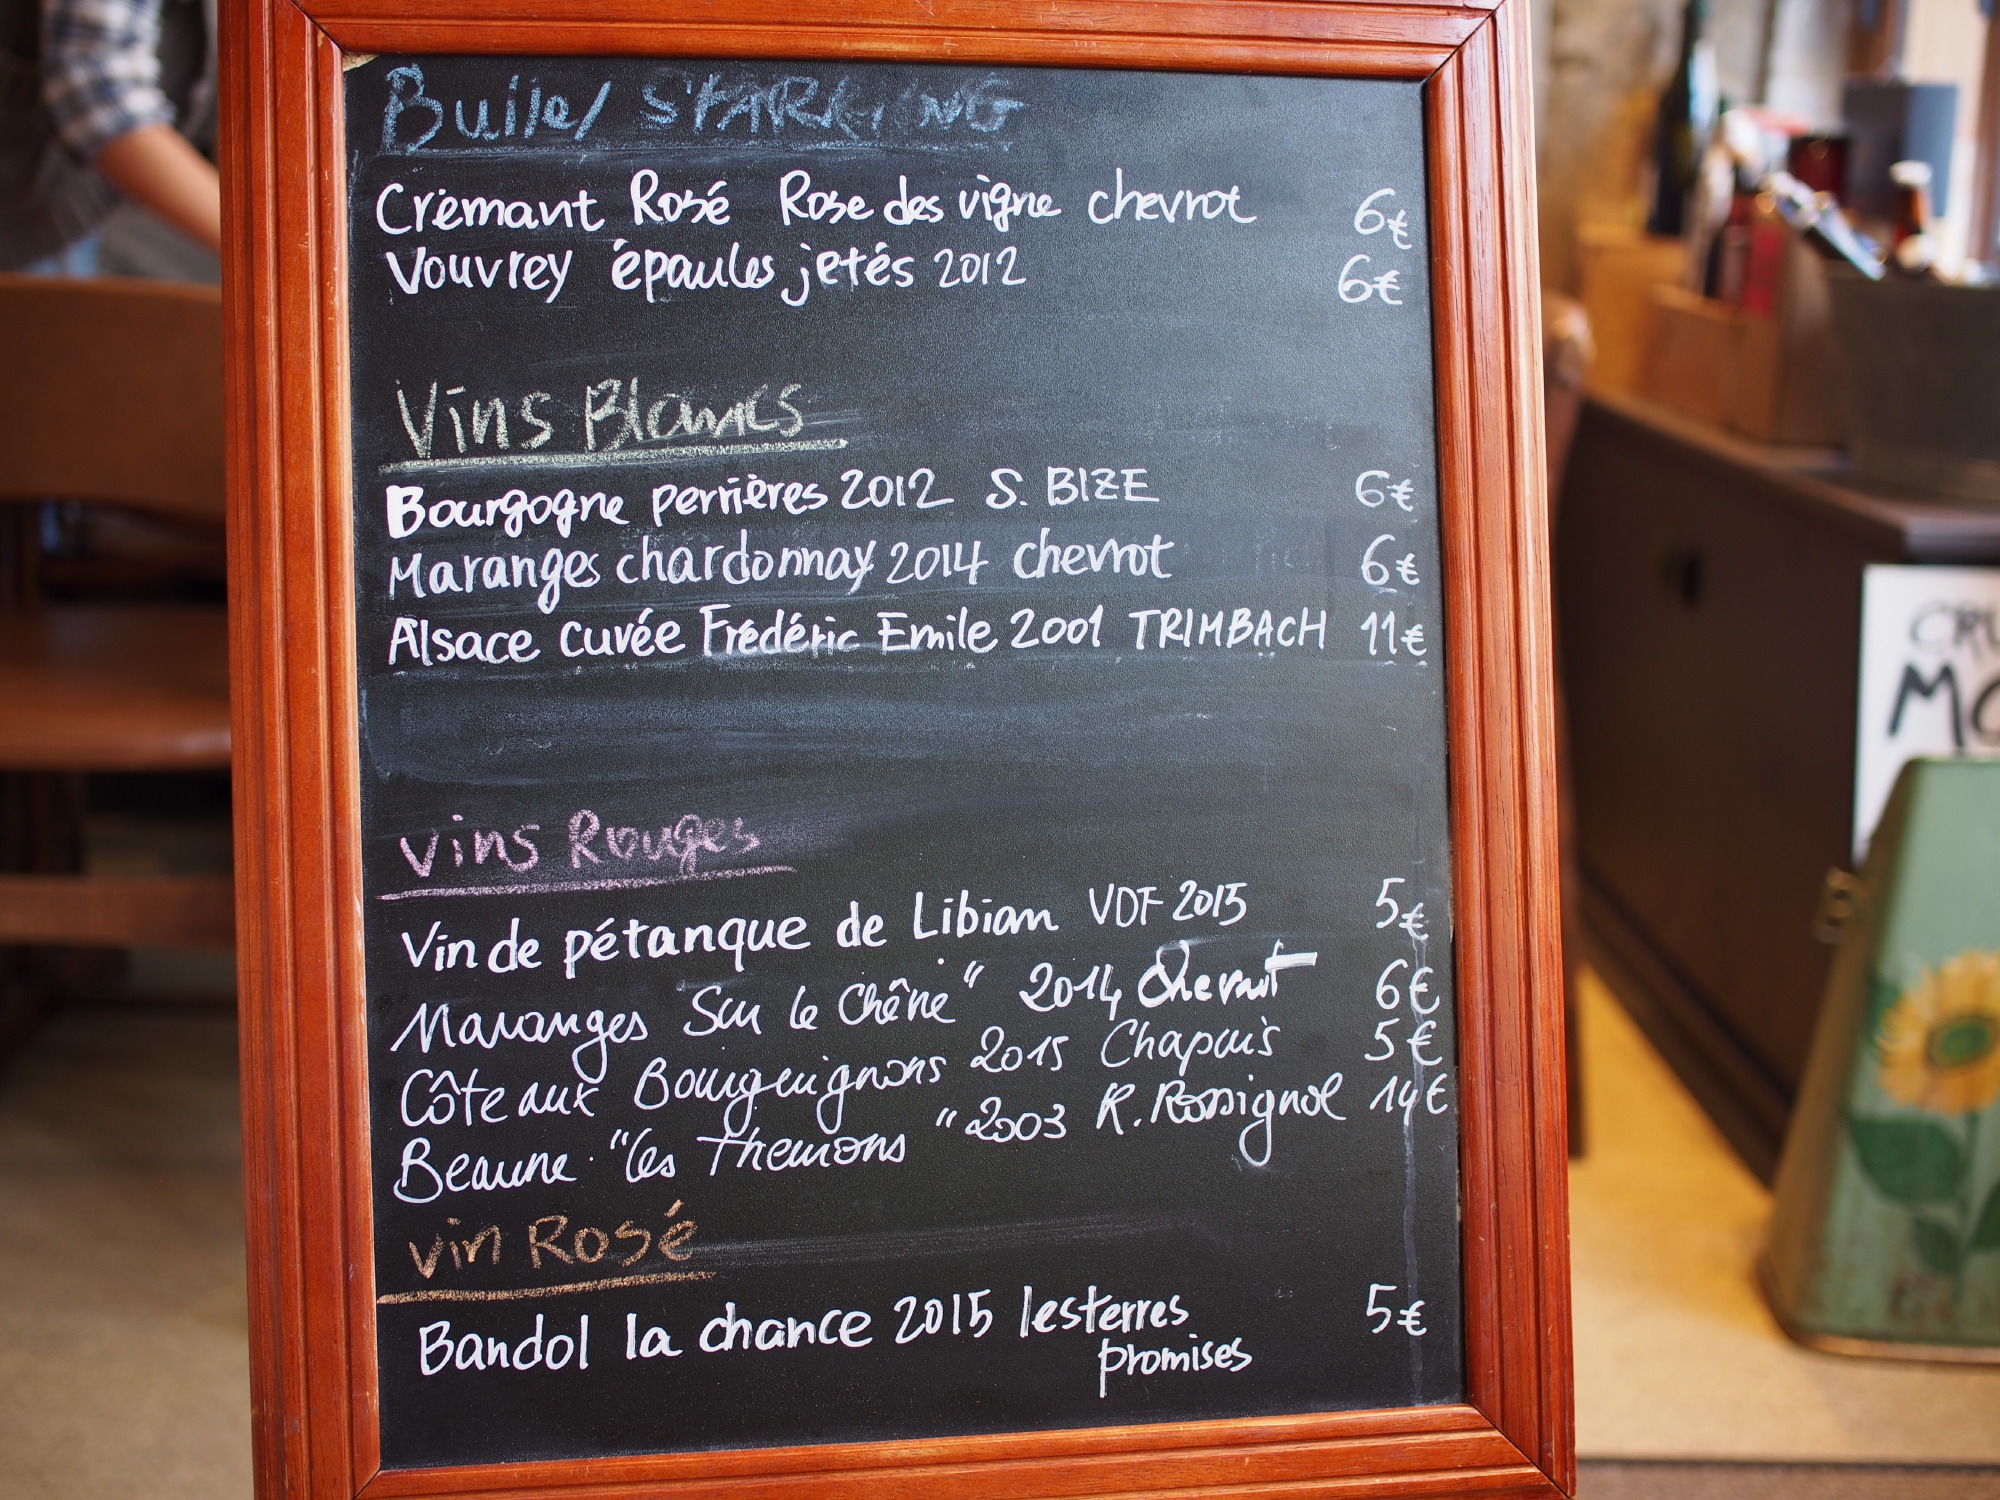 Bulles SPARKLING
Crémant Rosé Rose des vigne chevrot 6€
Vouvrey épaules jetés 2012 6€
Vins Blancs
Bourgogne perrières 2012 S. BIZE 6€
Maranges chardonnay 2014 chevrot 6€
Alsace cuvée Frédéric Emile 2001 TRIMBACH 11€
Vins Rouges
Vin de pétanque de Libian VDF 2015 5€
Maranges "Sur le Chêne" 2014 Chevrot 6€
Côteaux Bourguignons 2015 Chapuis 5€
Beaune "les Theurons" 2003 R. Rossignol 14€
vin Rosé
Bandol la chance 2015 les terres 5€
promises
CRU
MO